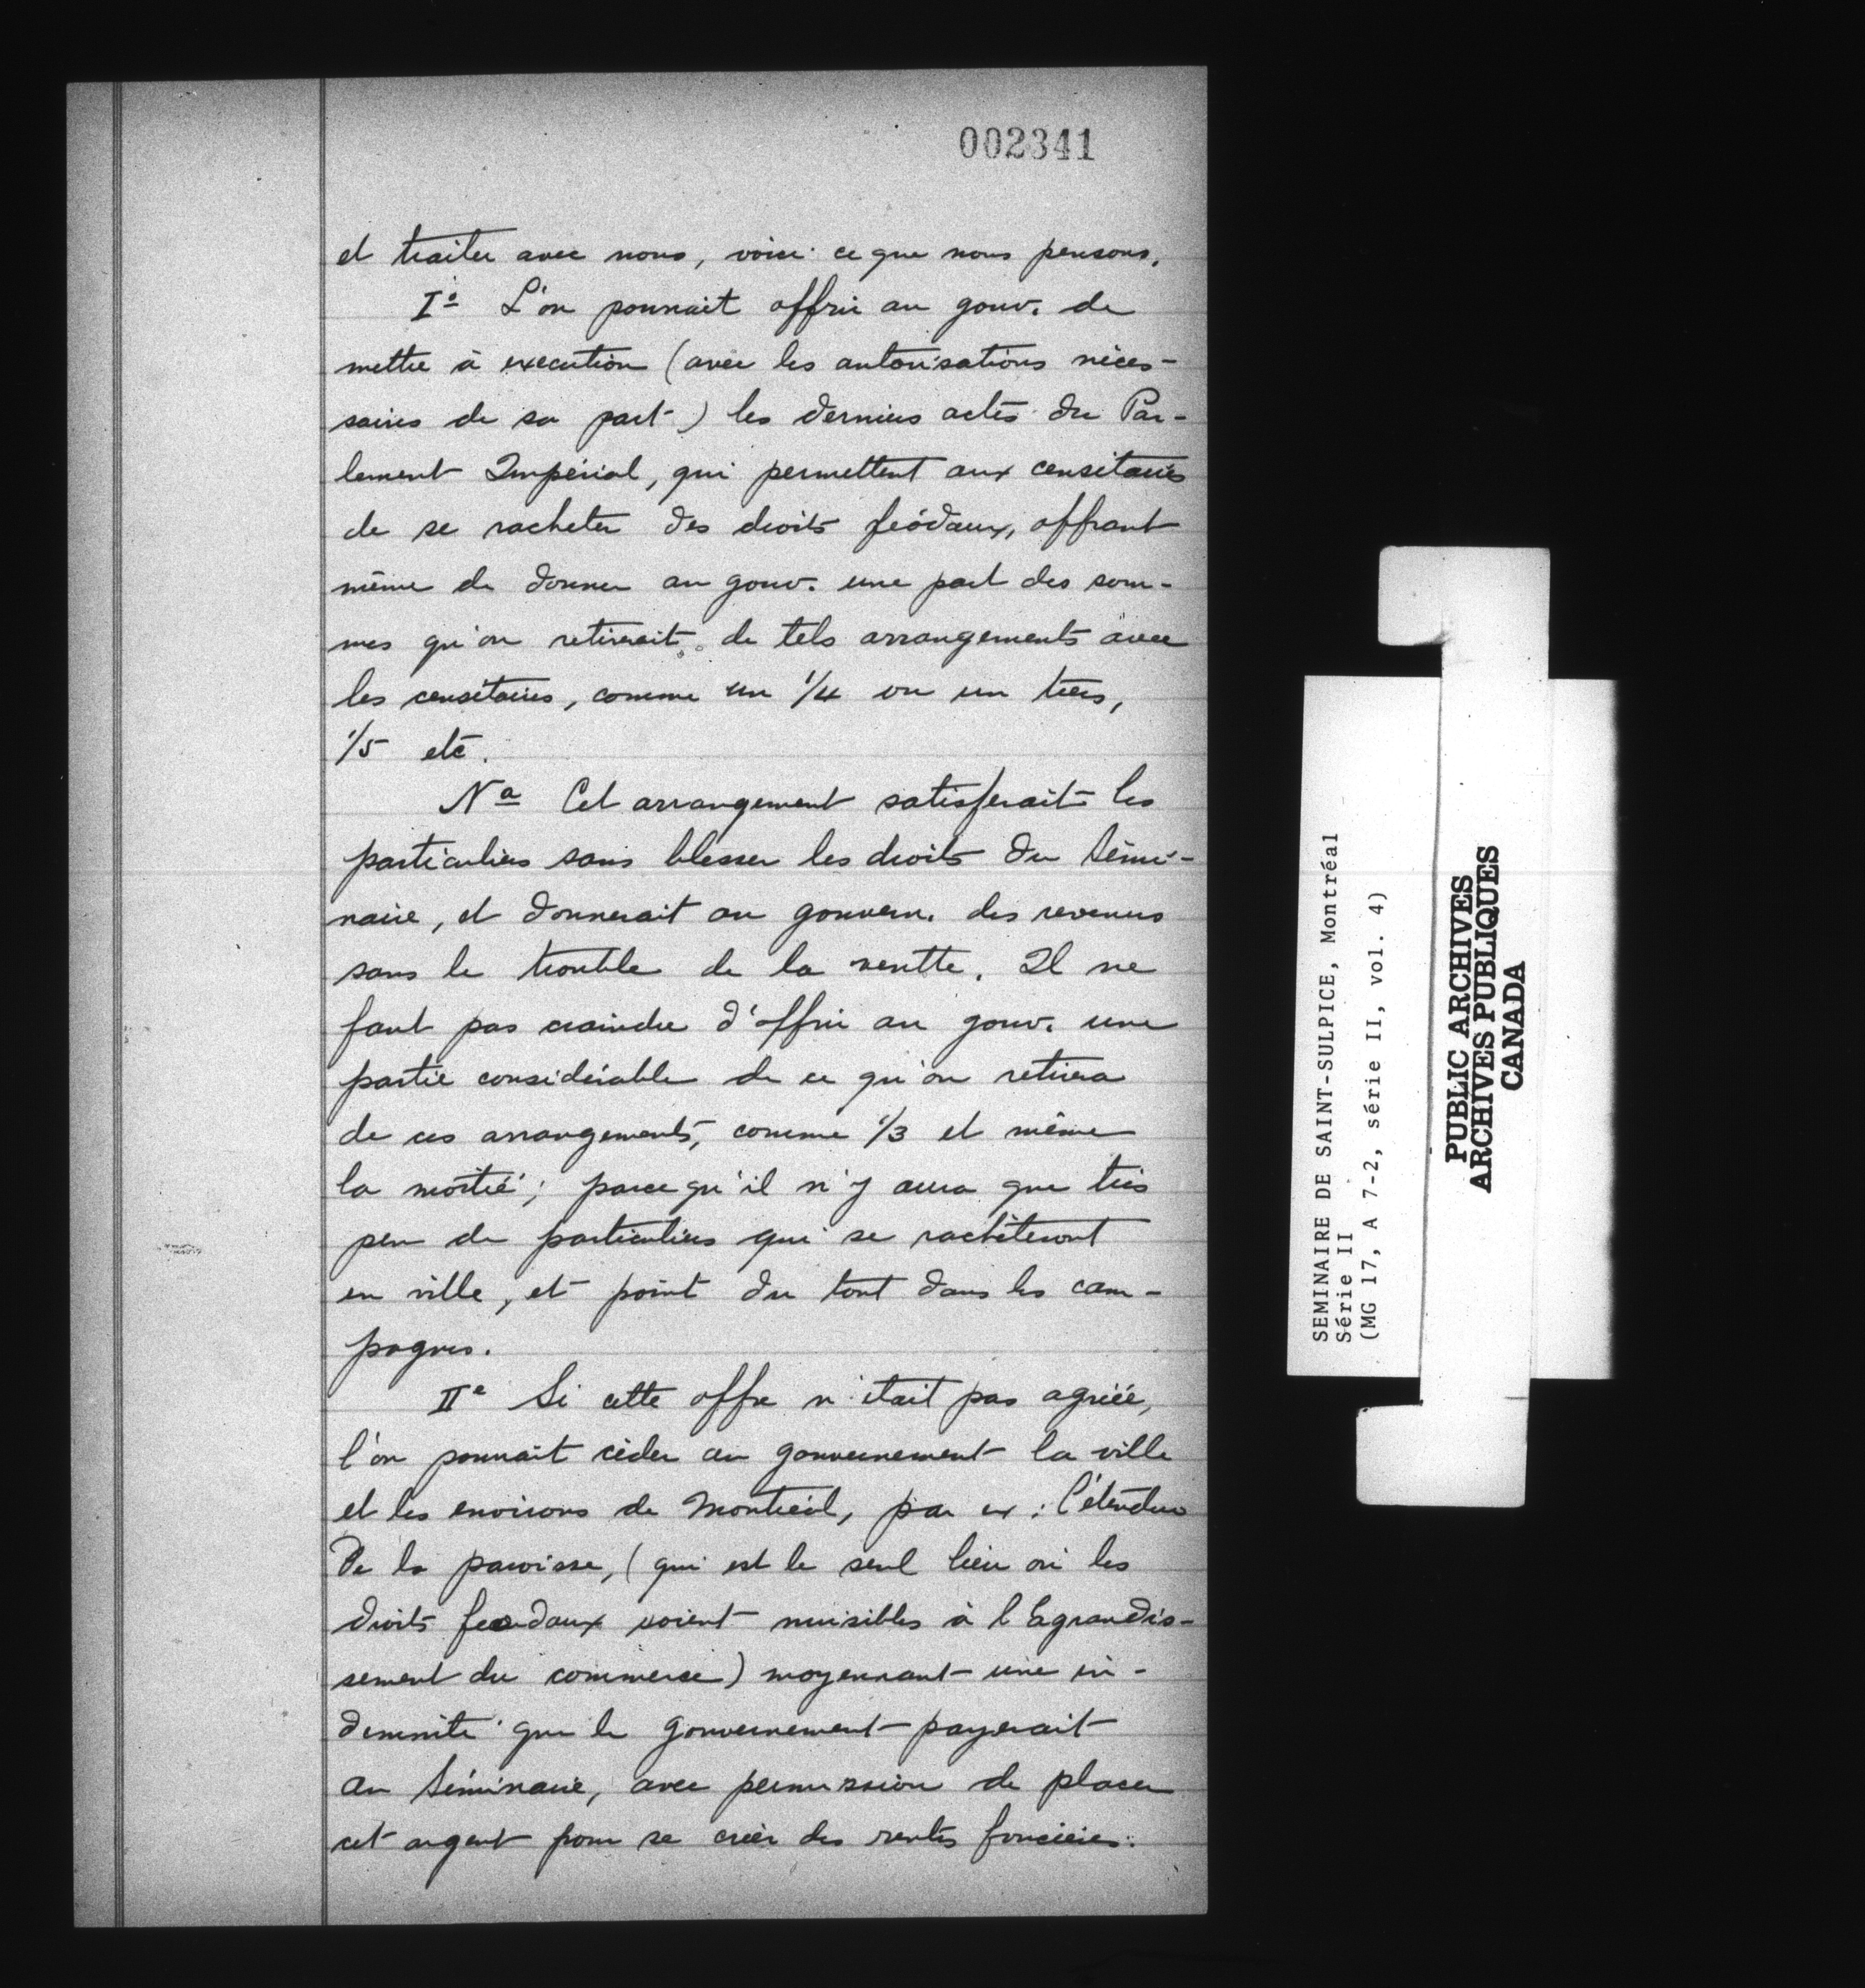 002341
et traiter avec nous, voici ce que nous pensons.
Iº L'on pourrait offrir au gouv. de
mettre à execution (avec les autorisations néces-
saires de sa part) les derniers actes du Par-
lement Impérial, qui permettent aux censitaires
de se racheter des droits féodaux, offrant
même de donner au gouv. une part des som-
mes qu'on retirerait de tels arrangements avec
les censitaires, comme un 1/4 ou un tiers,
1/5 etc.
Nª Cet arrangement satisferait les
particuliers sans blesser les droits du Sémi-
naire, et donnerait au gouvern. des revenus
sans le trouble de la ventte. Il ne
faut pas craindre d'offrir au gouv. une
partie considérable de ce qu'on retirera
de ces arrangements, comme 1/3 et même
la moitié; parce qu'il n'y aura que très
peu de particuliers qui se rachèteront
en ville, et point du tout dans les cam-
pagnes.
IIe Si cette offre n'était pas agréée,
l'on pourrait céder au gouvernement la ville
et les environs de Montréal, par ex: l'étendue
De la paroisse, (qui est le seul lieu où les
droits feodaux soient nuisibles à l'Agrandis-
sement du commerce) moyennant une in-
demnité que le gouvernement payerait
au Séminaire, avec permission de placer
cet argent pour se créer des rentes foncières.
SEMINAIRE DE SAINT-SULPICE, Montréal
Série II
(MG 17, A 7-2, série II, vol. 4)
PUBLIC ARCHIVES
ARCHIVES PUBLIQUES
CANADA